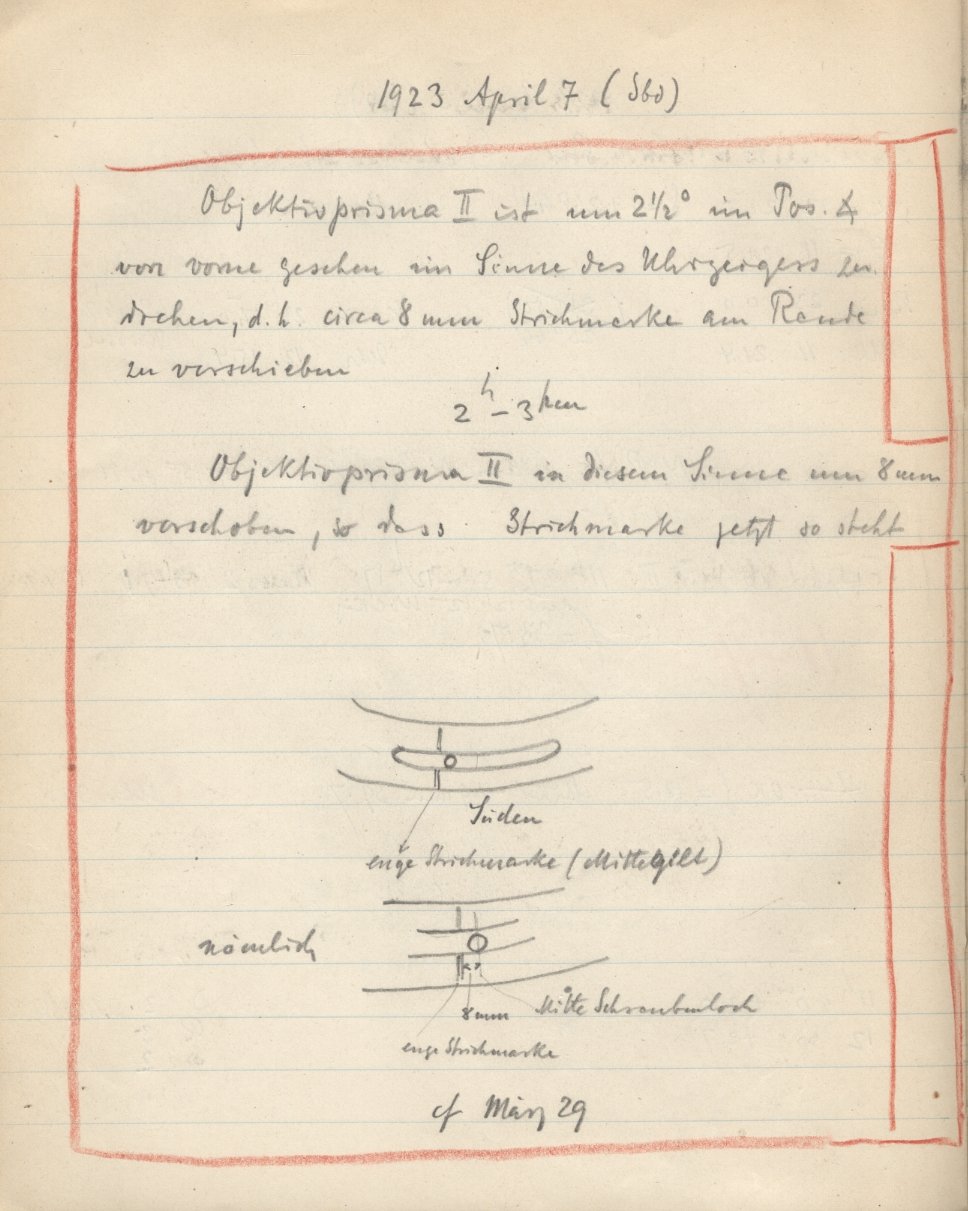 1923 April 7 (Sbd)
Objektivprisma II ist um 2½° im Pos. ∡
von vorne gesehen im Sinne des Uhrzeigers zu
drehen, d.h. circa 8 mm Strichmarke am Rande
zu verschieben
2ʰ–3ʰ
Objektivprisma II in diesem Sinne um 8 mm
verschoben, so dass Strichmarke jetzt so steht
Süden
enge Strichmarke (Mitte gilt)
nämlich
8mm Mitte Schraubenloch
enge Strichmarke
cf März 29